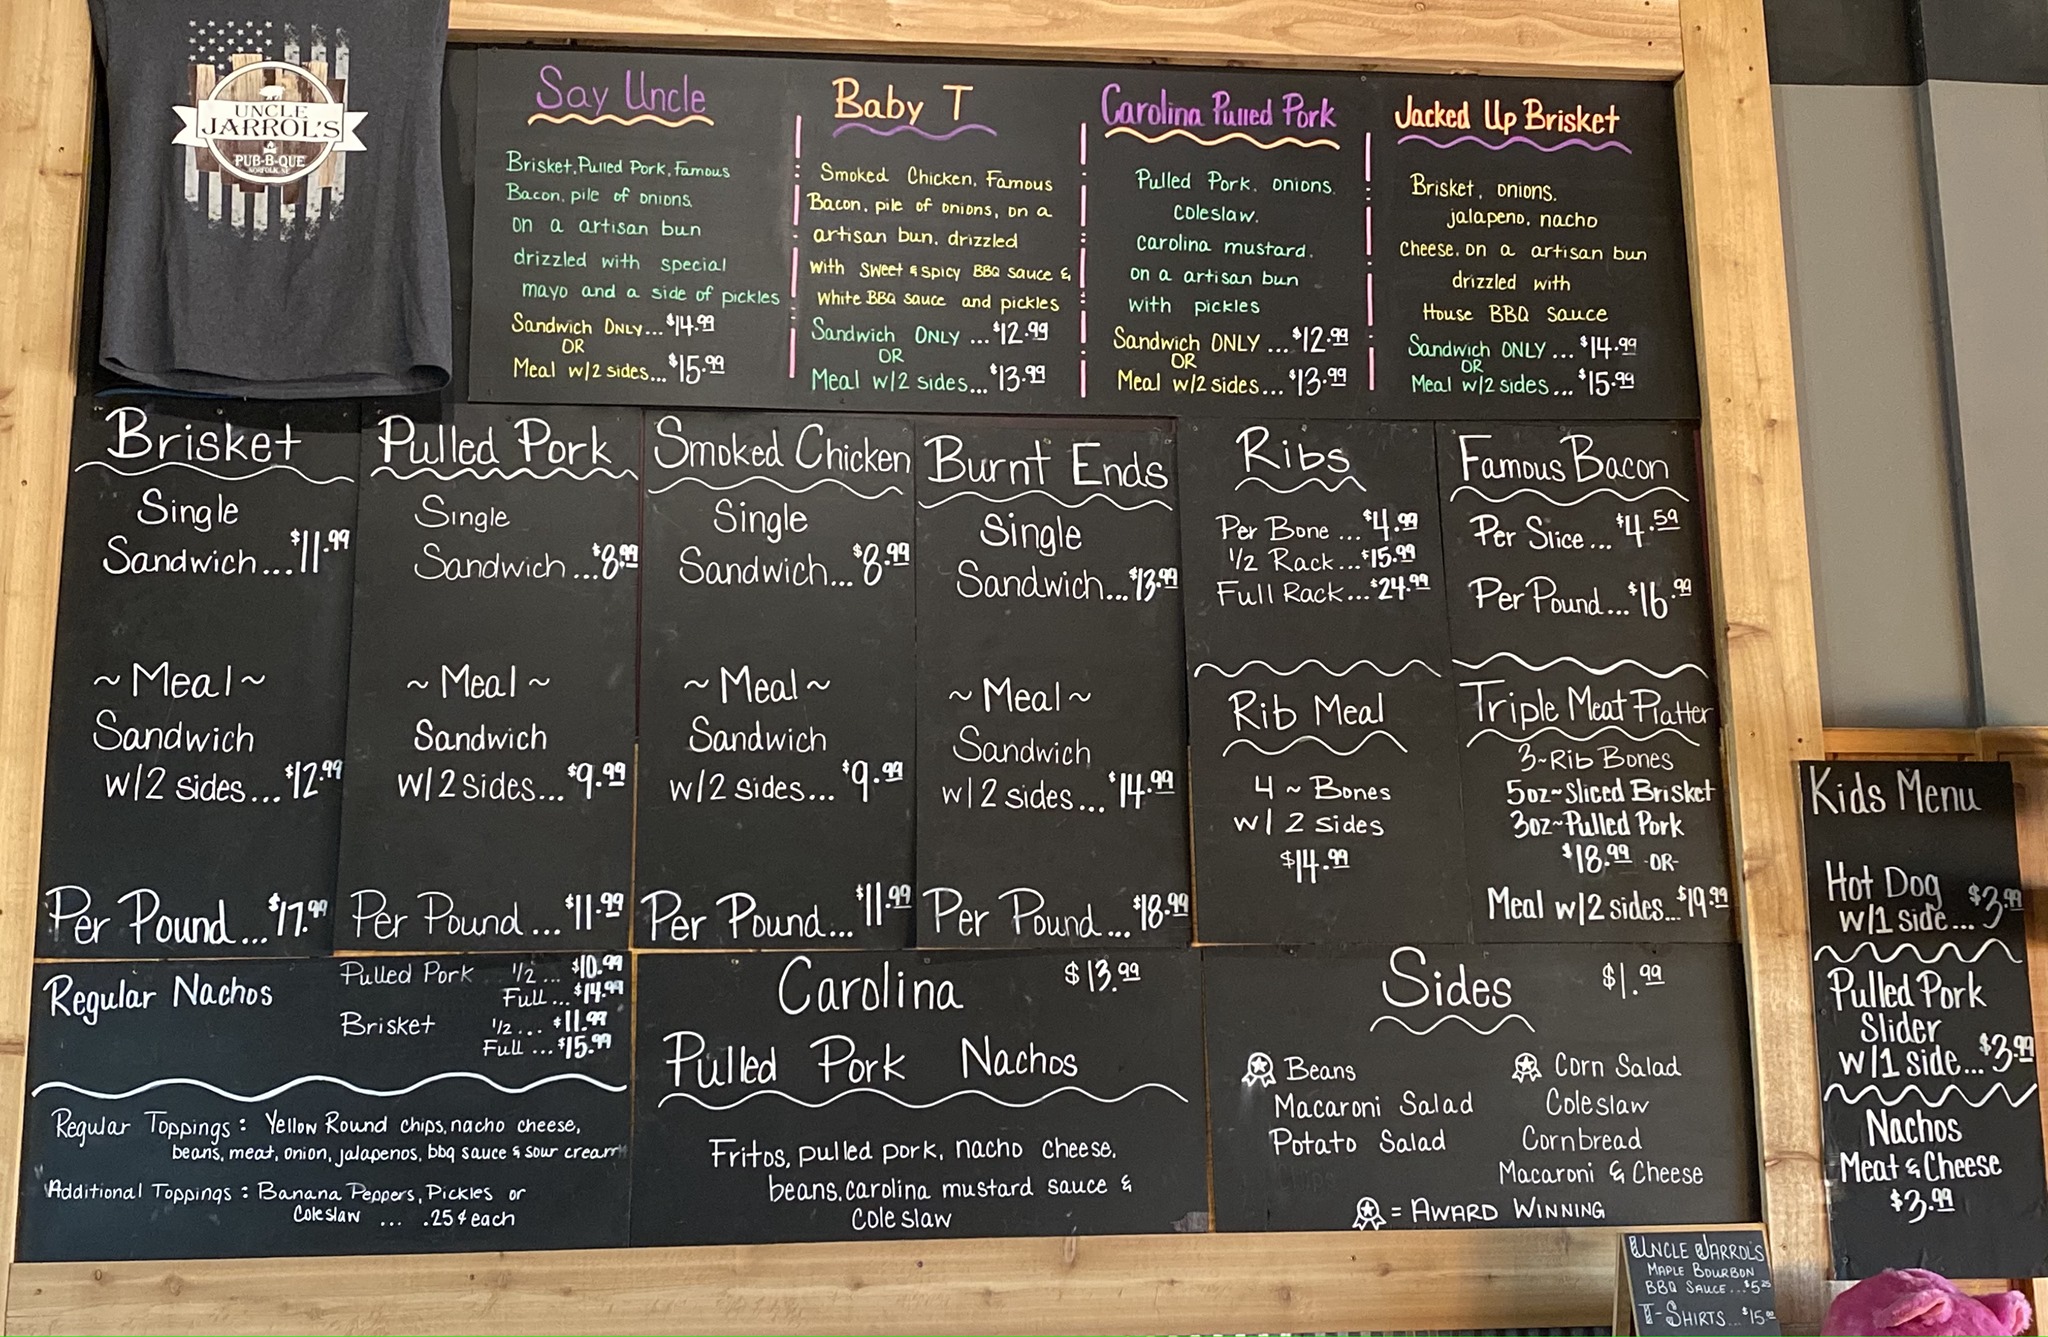 UNCLE
JARROL'S
PUB-B-QUE
NORFOLK, NE
Say Uncle
Brisket, Pulled Pork, Famous
Bacon, pile of onions,
on a artisan bun
drizzled with special
mayo and a side of pickles
Sandwich ONLY... $14.99
OR
Meal w/2 sides... $15.99
Baby T
Smoked Chicken, Famous
Bacon, pile of onions, on a
artisan bun, drizzled
with sweet & spicy BBQ sauce &
white BBQ sauce and pickles
Sandwich ONLY ... $12.99
OR
Meal w/2 sides... $13.99
Carolina Pulled Pork
Pulled Pork, onions,
coleslaw,
carolina mustard,
on a artisan bun
with pickles
Sandwich ONLY ... $12.99
OR
Meal w/2 sides... $13.99
Jacked Up Brisket
Brisket, onions,
jalapeno, nacho
cheese, on a artisan bun
drizzled with
House BBQ sauce
Sandwich ONLY ... $14.99
OR
Meal w/2 sides ... $15.99
Brisket
Single
Sandwich... $11.99
~ Meal ~
Sandwich
w/2 sides... $12.99
Per Pound... $17.99
Pulled Pork
Single
Sandwich ... $8.99
~ Meal ~
Sandwich
w/2 sides... $9.99
Per Pound ... $11.99
Smoked Chicken
Single
Sandwich... $8.99
~ Meal ~
Sandwich
w/2 sides... $9.99
Per Pound... $11.99
Burnt Ends
Single
Sandwich... $13.99
~ Meal ~
Sandwich
w/2 sides... $14.99
Per Pound... $18.99
Ribs
Per Bone ... $4.99
1/2 Rack... $15.99
Full Rack... $24.99
Rib Meal
4 ~ Bones
w/2 sides
$14.99
Famous Bacon
Per Slice... $4.59
Per Pound... $16.99
Triple Meat Platter
3~Rib Bones
5oz~Sliced Brisket
3oz~Pulled Pork
$18.99 -OR-
Meal w/2 sides... $19.99
Regular Nachos
Pulled Pork 1/2 ... $10.99
Full ... $14.99
Brisket 1/2 ... $11.99
Full ... $15.99
Regular Toppings: Yellow Round chips, nacho cheese,
beans, meat, onion, jalapenos, bbq sauce & sour cream
Additional Toppings: Banana Peppers, Pickles or
Coleslaw ... .25¢ each
Carolina $13.99
Pulled Pork Nachos
Fritos, pulled pork, nacho cheese,
beans, carolina mustard sauce &
Coleslaw
Sides $1.99
Beans
Macaroni Salad
Potato Salad
Corn Salad
Coleslaw
Cornbread
Macaroni & Cheese
= AWARD WINNING
Kids Menu
Hot Dog
w/1 side... $3.99
Pulled Pork
Slider
w/1 side... $3.99
Nachos
Meat & Cheese
$3.99
UNCLE JARROL'S
MAPLE BOURBON
BBQ SAUCE... $5.25
T-SHIRTS... $15.00